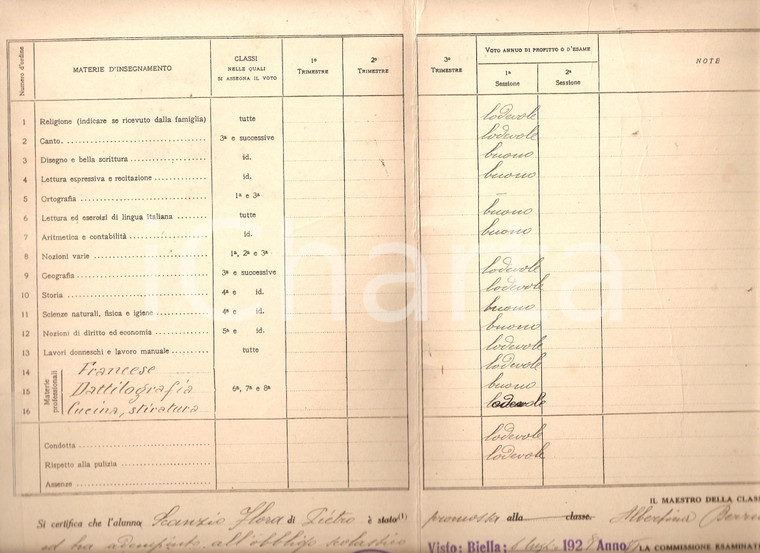 Numero d'ordine
MATERIE D'INSEGNAMENTO
CLASSI
NELLE QUALI
SI ASSEGNA IL VOTO
1º
TRIMESTRE
2º
TRIMESTRE
3º
TRIMESTRE
VOTO ANNUO DI PROFITTO O D'ESAME
1ª
Sessione
2ª
Sessione
NOTE
1 Religione (indicare se ricevuto dalla famiglia) tutte lodevole
2 Canto. 3ª e successive lodevole
3 Disegno e bella scrittura id. buono
4 Lettura espressiva e recitazione id. buono
5 Ortografia 1ª e 3ª —
6 Lettura ed esercizi di lingua Italiana tutte buono
7 Aritmetica e contabilità id. buono
8 Nozioni varie 1ª, 2ª e 3ª
9 Geografia 3ª e successive lodevole
10 Storia 4ª e id. lodevole
11 Scienze naturali, fisica e igiene 4ª e id. buono
12 Nozioni di diritto ed economia 5ª e id. buono
13 Lavori donneschi e lavoro manuale tutte lodevole
Materie professionali
14 Francese lodevole
15 Dattilografia 6ª, 7ª e 8ª buono
16 Cucina, stiratura lodevole
Condotta lodevole
Rispetto alla pulizia lodevole
Assenze
IL MAESTRO DELLA CLAS
Si certifica che l'alunna Scanzio Flora di Pietro è stato(1) promossa alla classe. Albertina
ed ha adempiuto all'obbligo scolastico
Visto: Biella: 192 Anno LA COMMISSIONE ESAMINAT
iCharta